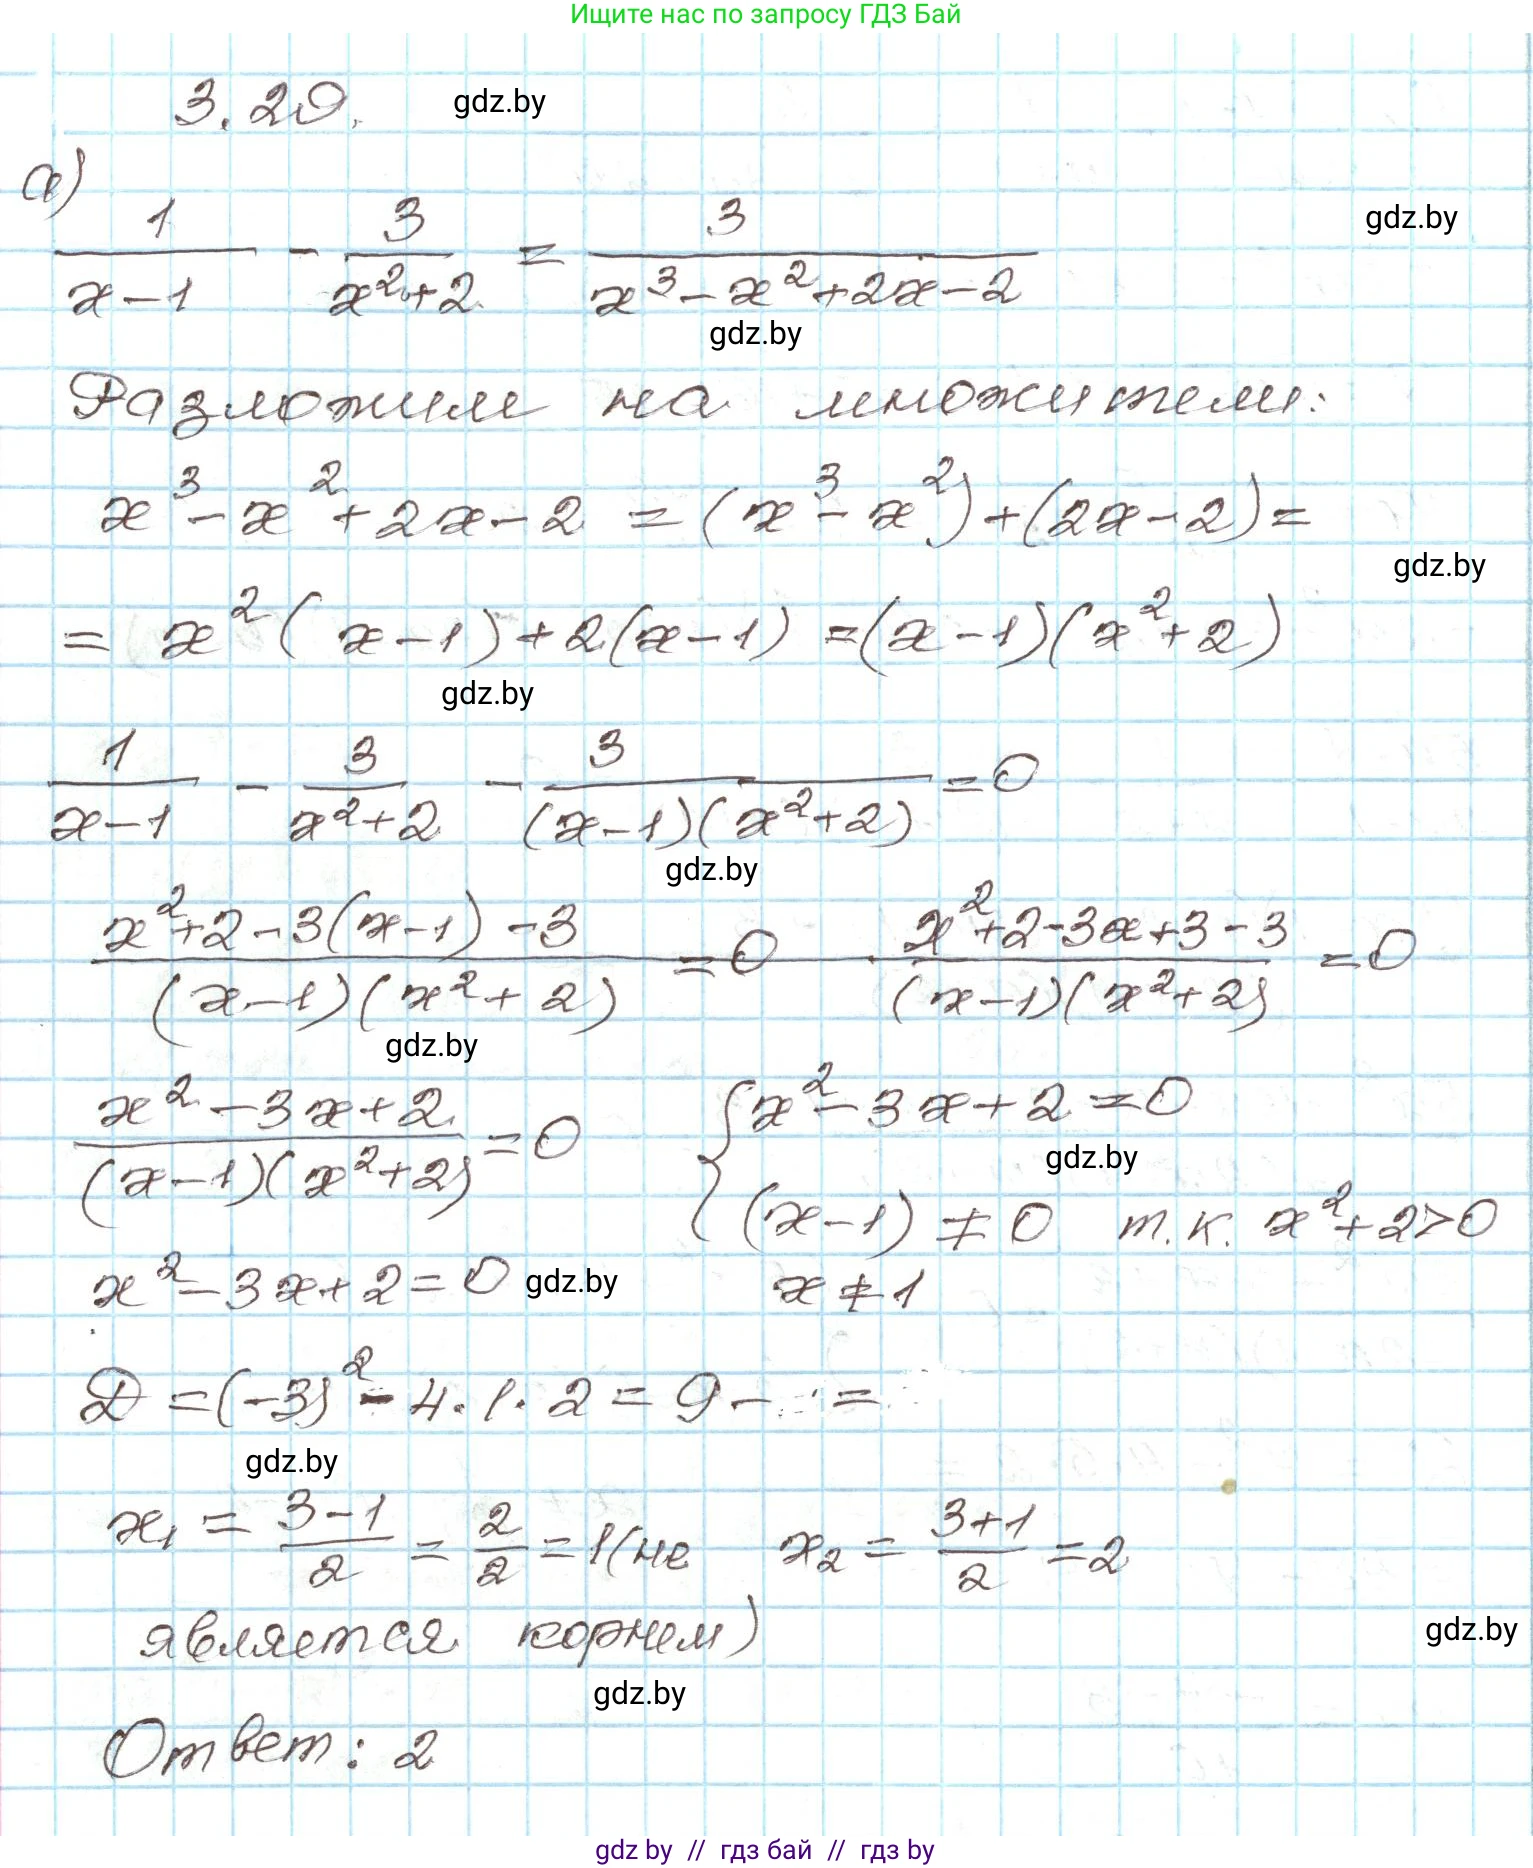 Ищите нас по запросу ГДЗ Бай
3.20. gdz.by
а)
1/(x-1) - 3/(x²+2) = 3/(x³-x²+2x-2) gdz.by
gdz.by
Разложим на множители:
x³-x²+2x-2 = (x³-x²)+(2x-2)=
gdz.by
= x²(x-1)+2(x-1) =(x-1)(x²+2)
gdz.by
1/(x-1) - 3/(x²+2) - 3/((x-1)(x²+2)) =0
gdz.by
(x²+2-3(x-1)-3)/((x-1)(x²+2)) =0 (x²+2-3x+3-3)/((x-1)(x²+2)) =0
gdz.by
(x²-3x+2)/((x-1)(x²+2)) =0 { x²-3x+2=0
gdz.by
(x-1) ≠ 0 т.к. x²+2>0
x²-3x+2=0 gdz.by x ≠ 1
D =(-3)²-4·1·2 = 9- =
gdz.by
x₁ = (3-1)/2 = 2/2 = 1 (не x₂ = (3+1)/2 =2
является корнем) gdz.by
gdz.by
Ответ: 2
gdz by // гдз бай // гдз by